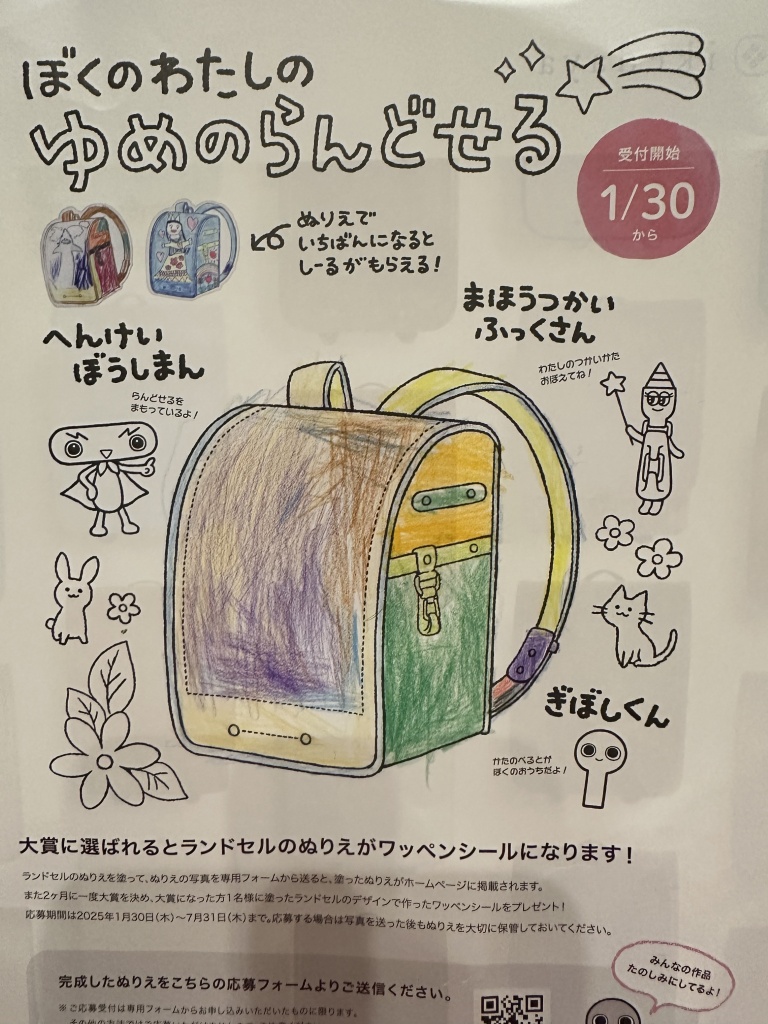 ぼくのわたしの
ゆめのらんどせる
受付開始
1/30
から
ぬりえで
いちばんになると
しーるがもらえる!
まほうつかい
ふっくさん
わたしのつかいかた
おぼえてね!
へんけい
ぼうしまん
らんどせるを
まもっているよ!
ぎぼしくん
かたのべるとが
ぼくのおうちだよ!
大賞に選ばれるとランドセルのぬりえがワッペンシールになります!
ランドセルのぬりえを塗って、ぬりえの写真を専用フォームから送ると、塗ったぬりえがホームページに掲載されます。
また2ヶ月に一度大賞を決め、大賞になった方1名様に塗ったランドセルのデザインで作ったワッペンシールをプレゼント!
応募期間は2025年1月30日(木)〜7月31日(木)まで。応募する場合は写真を送った後もぬりえを大切に保管しておいてください。
みんなの作品
たのしみにしてるよ!
完成したぬりえをこちらの応募フォームよりご送信ください。
※ご応募受付は専用フォームからお申し込みいただいたものに限ります。